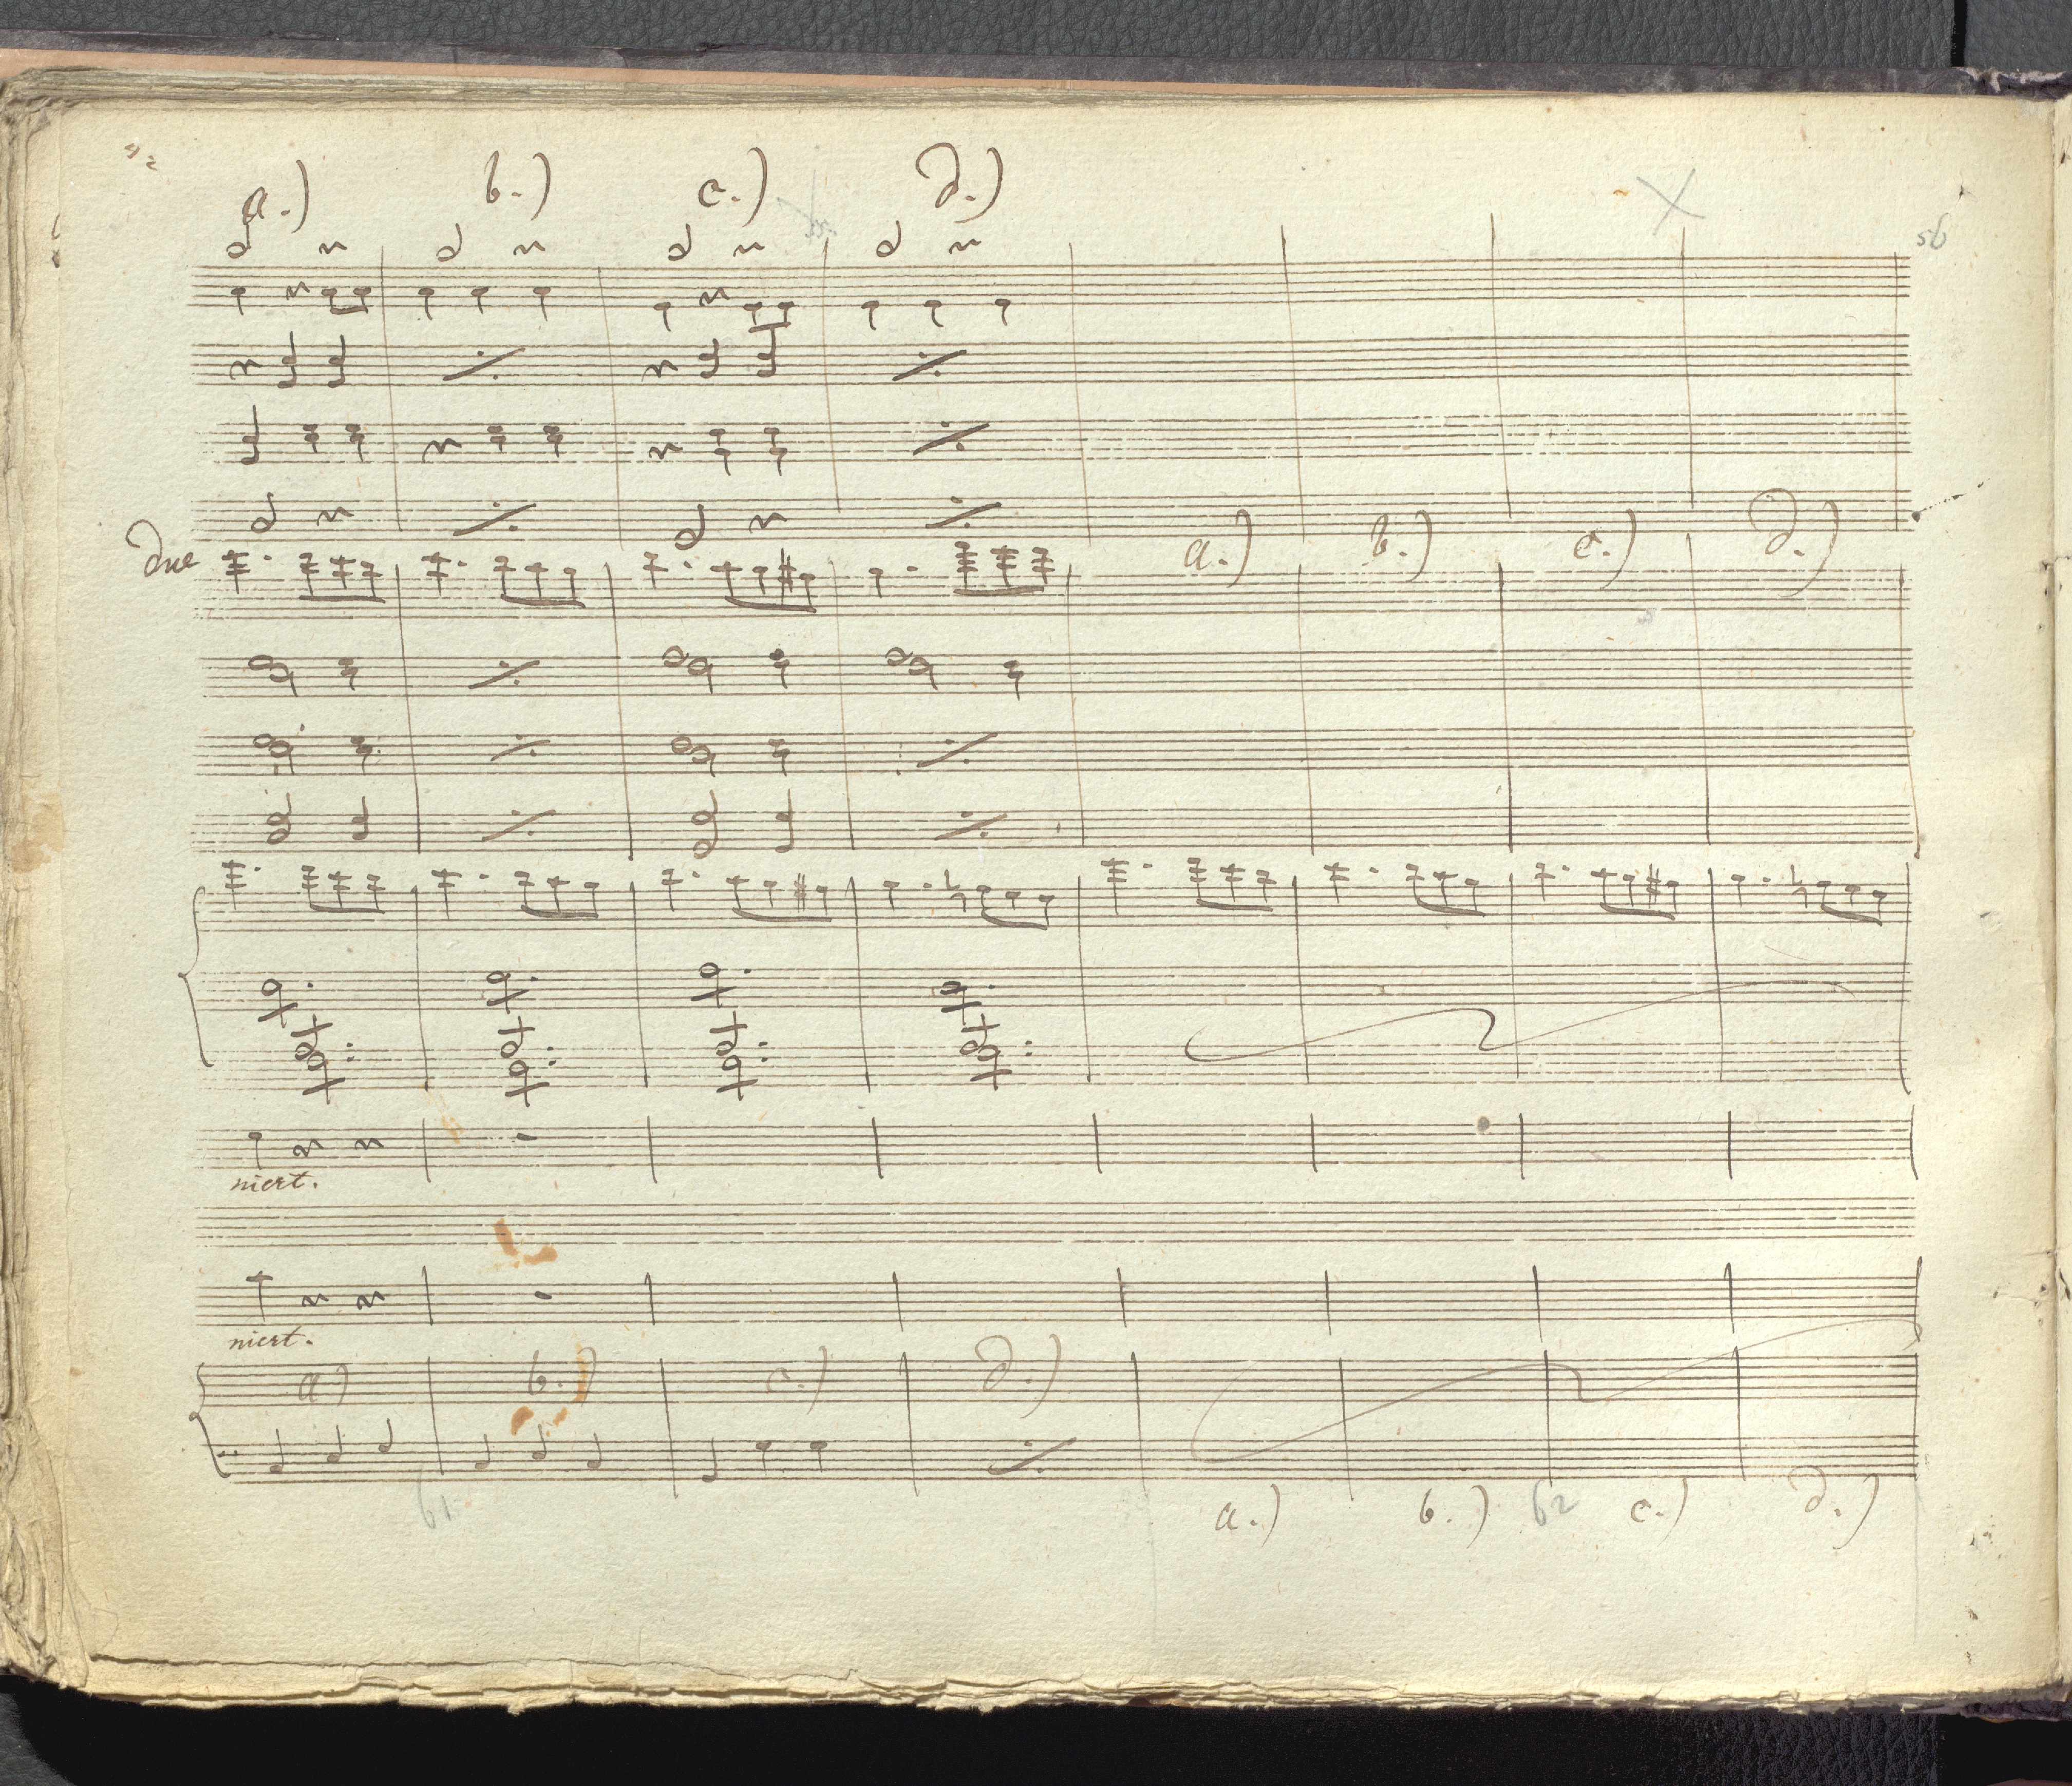 a.) b.) c.) d.)
56
due
a.) b.) c.) d.)
niert.
niert.
a) b.) c.) d.)
61
a.) b.) 62 c.) d.)